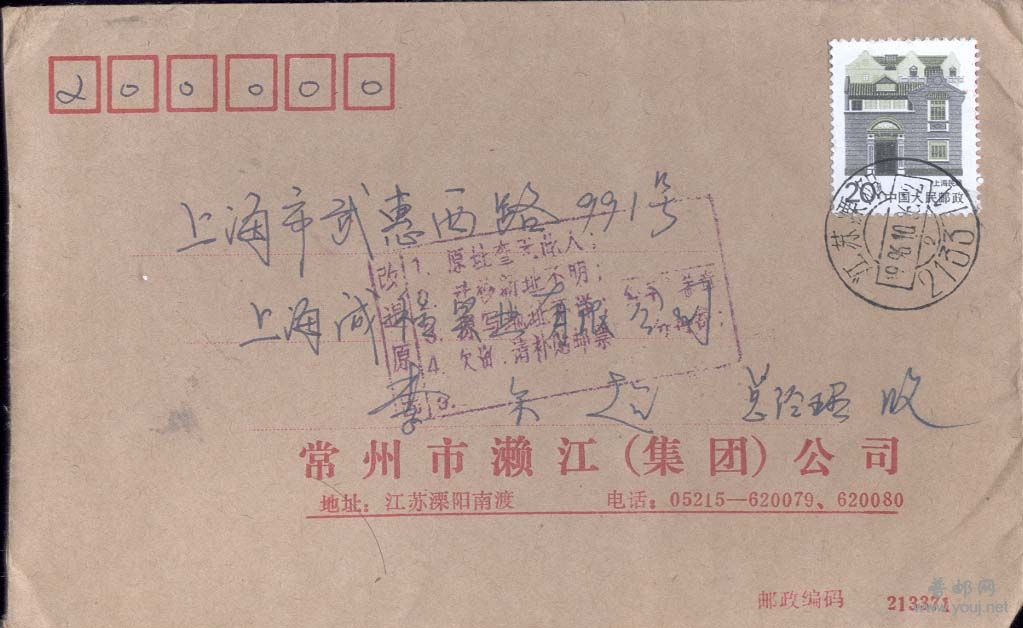 200000
上海民居
20 中国人民邮政
江苏溧
2133
上海市武惠西路991号
上海成 实业有限公司
李 总经理 收
改退
原
1. 原址查无此人;
2. 迁移新址不明;
3. 原写地址不详
4. 欠资,请补足邮票
5.
常州市濑江(集团)公司
地址:江苏溧阳南渡 电话:05215—620079、620080
邮政编码 213371
普邮网
www.youj.net